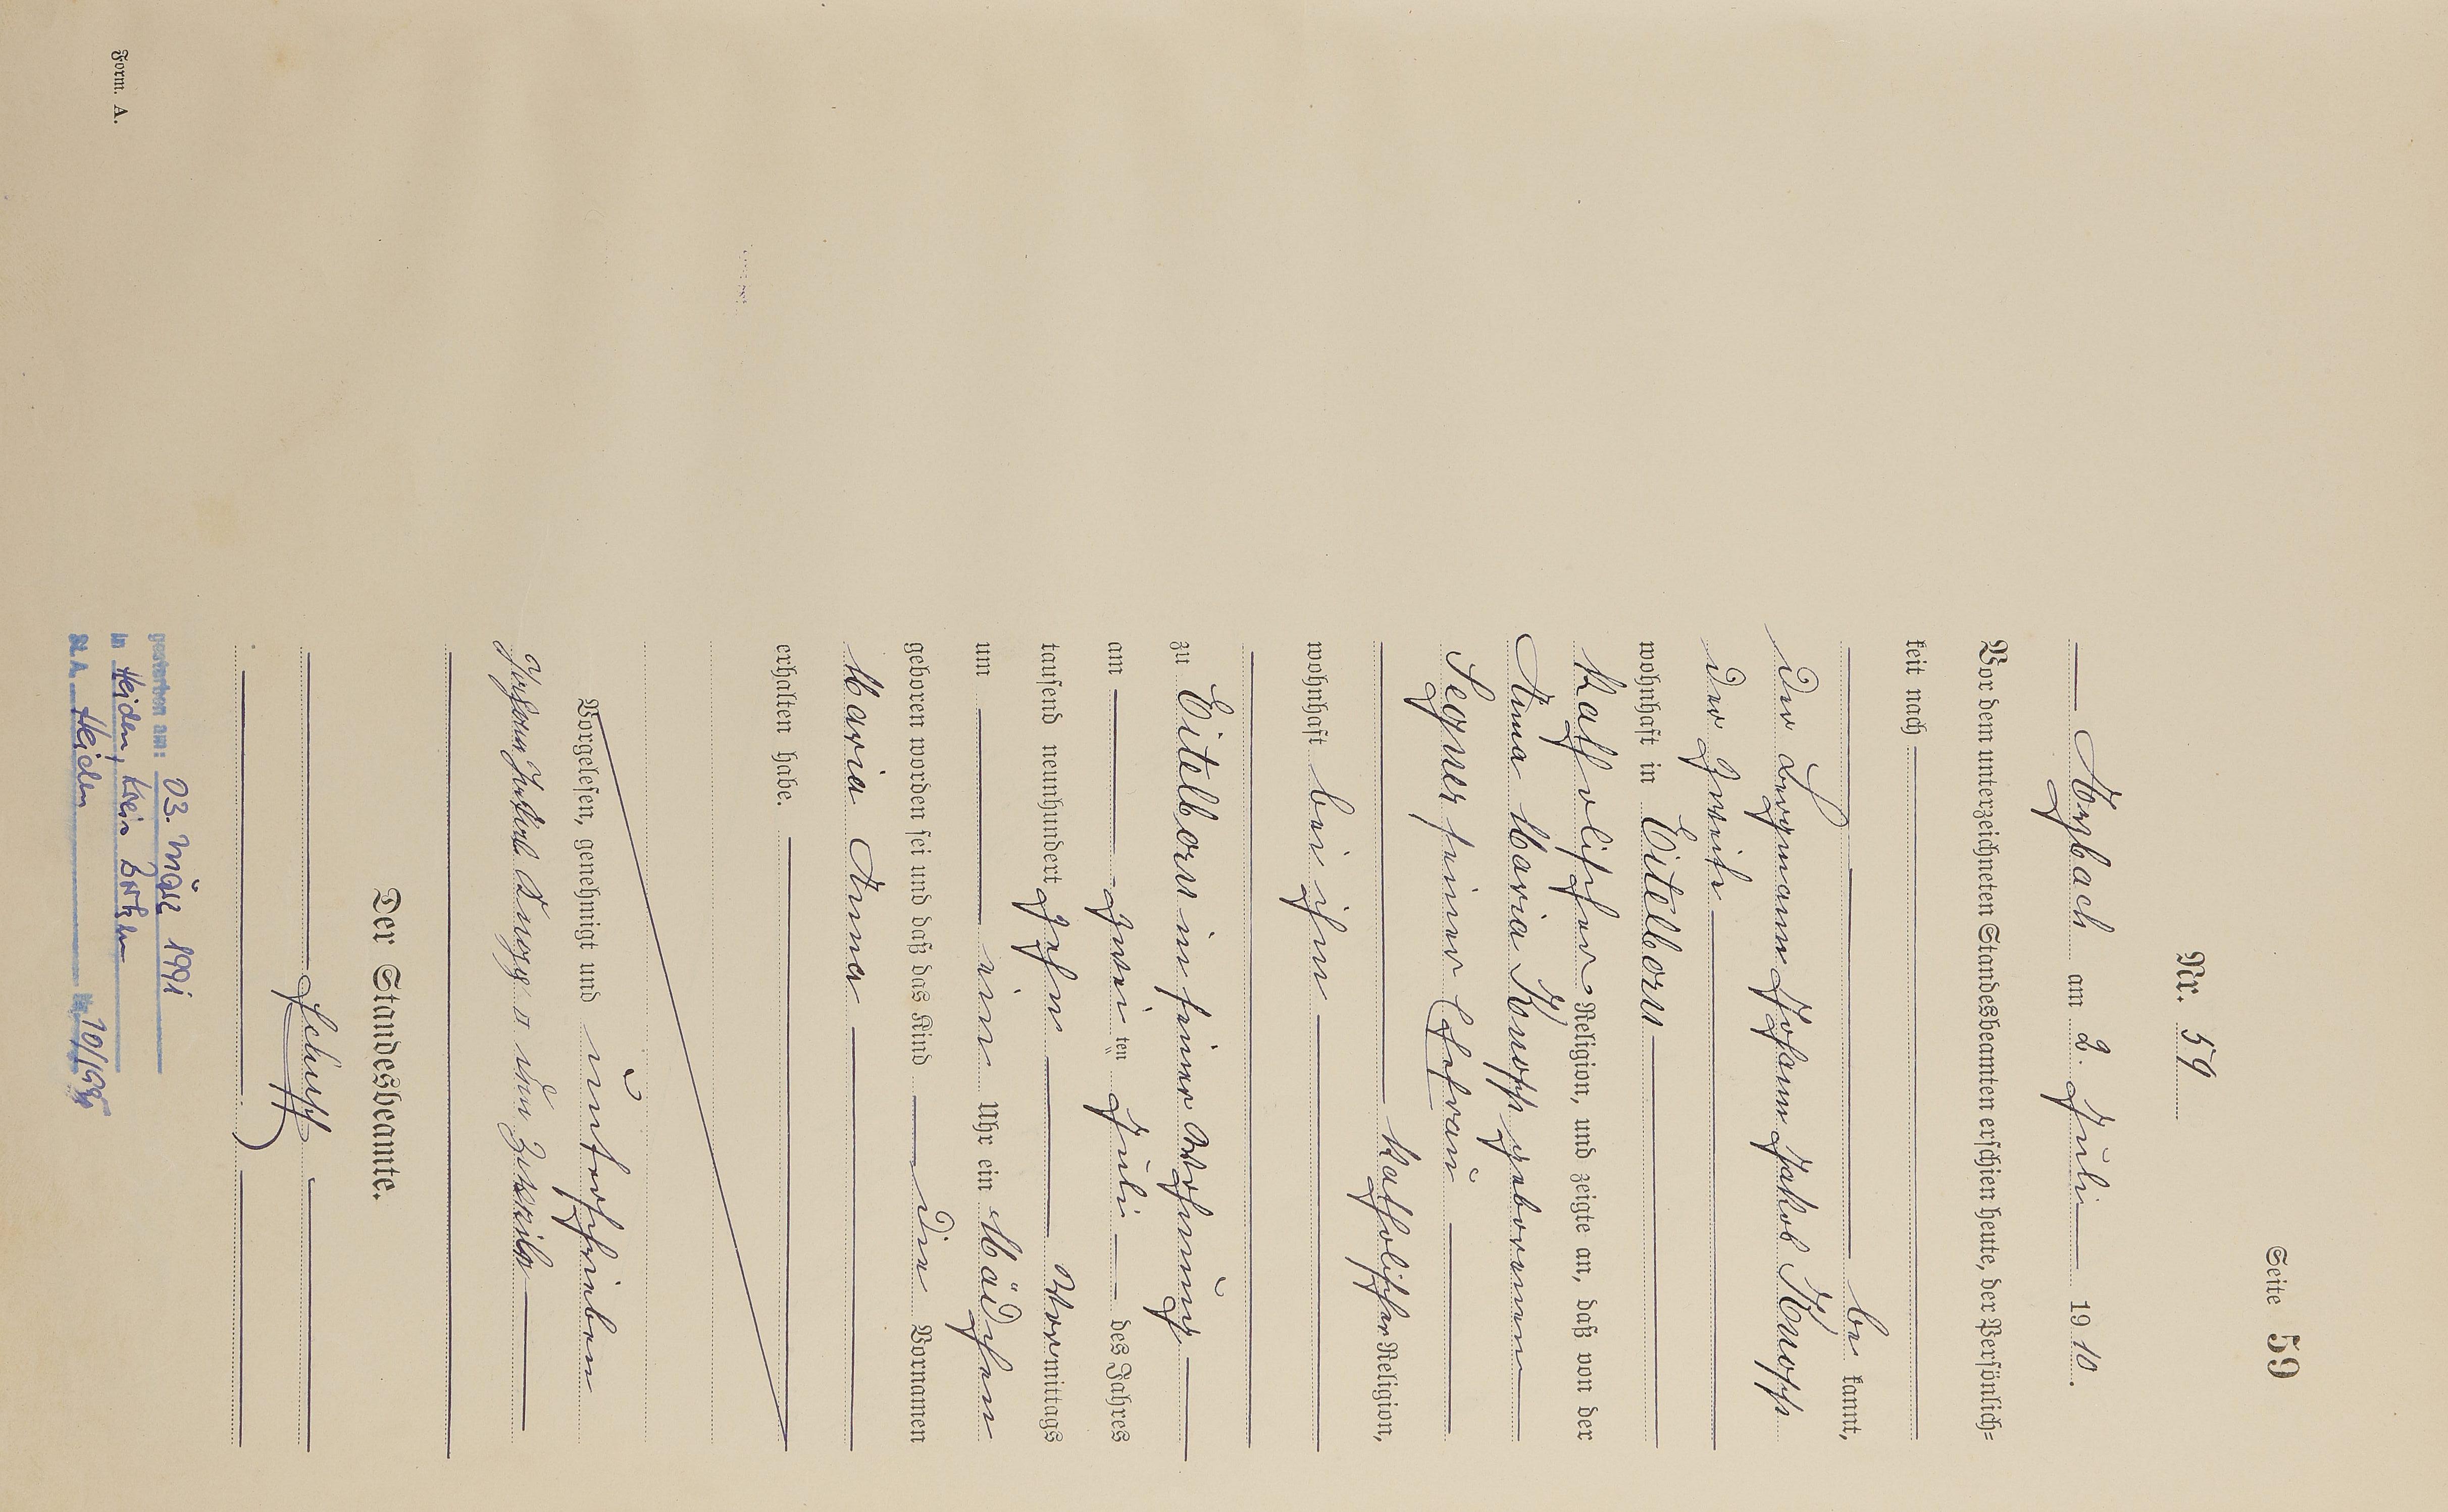 Seite 59
Nr. 59
Arzbach am 2. Juli 1910.
Vor dem unterzeichneten Standesbeamten erschien heute, der Persönlich-
keit nach
be kannt,
der Bergmann Johann Jakob Knopp
der Zweite
wohnhaft in Eitelborn
katholischer Religion, und zeigte an, daß von der
Anna Maria Knopp geborenen
Legner seiner Ehefrau
katholischer Religion,
wohnhaft bei ihm
zu Eitelborn in seiner Wohnung
am zwei ten Juli des Jahres
tausend neunhundert zehn Vormittags
um ein Uhr ein Mädchen
geboren worden sei und daß das Kind die Vornamen
Maria Anna
erhalten habe.
Vorgelesen, genehmigt und unterschrieben
Johann Jakob Knopp der Zweite
Der Standesbeamte.
Schupp
gestorben am: 03. März 1991
in Heiden, Kreis Borken
St. A. Heiden Nr. 10/1991
Form. A.